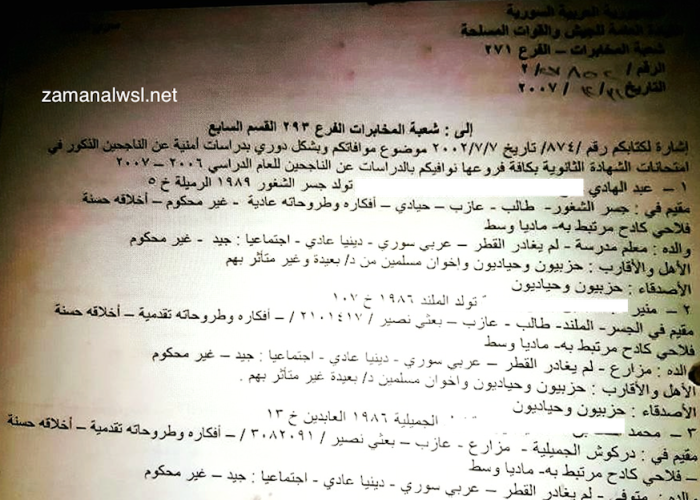 الجمهورية العربية السورية
القيادة العامة للجيش والقوات المسلحة
شعبة المخابرات – الفرع ٢٧١
الرقم / ٢/
التاريخ / ٢٠٠٧
zamanalwsl.net
إلى : شعبة المخابرات الفرع ٢٩٣ القسم السابع
إشارة لكتابكم رقم /٨٧٤/ تاريخ ٢٠٠٢/٧/٧ موضوع موافاتكم وبشكل دوري بدراسات أمنية عن الناجحين الذكور في
امتحانات الشهادة الثانوية بكافة فروعها نوافيكم بالدراسات عن الناجحين للعام الدراسي ٢٠٠٦ – ٢٠٠٧
١ – عبد الهادي تولد جسر الشغور ١٩٨٩ الرميلة خ ٥
مقيم في : جسر الشغور- طالب - عازب – حيادي – أفكاره وطروحاته عادية - غير محكوم – أخلاقه حسنة
فلاحي كادح مرتبط به- ماديا وسط
والده : معلم مدرسة - لم يغادر القطر – عربي سوري - دينيا عادي - اجتماعيا : جيد - غير محكوم
الأهل والأقارب : حزبيون وحياديون واخوان مسلمين من د/ بعيدة وغير متأثر بهم
الأصدقاء : حزبيون وحياديون
٢ – منير تولد الملند ١٩٨٦ خ ١٠٧
مقيم في الجسر- الملند- طالب - عازب – بعثي نصير / ٢١٠١٤١٧ / – أفكاره وطروحاته تقدمية – أخلاقه حسنة
فلاحي كادح مرتبط به- ماديا وسط
والده : مزارع - لم يغادر القطر – عربي سوري - دينيا عادي - اجتماعيا : جيد – غير محكوم
الأهل والأقارب : حزبيون وحياديون واخوان مسلمين د/ بعيدة غير متأثر بهم .
الأصدقاء : حزبيون وحياديون
٣ – محمد الجميلية ١٩٨٦ العابدين خ ١٣
مقيم في : دركوش الجميلية - مزارع - عازب – بعثي نصير / ٣٠٨٢٠٩١ / – أفكاره وطروحاته تقدمية – أخلاقه حسنة
– فلاحي كادح مرتبط به- ماديا وسط
والده : متوفي - لم يغادر القطر – عربي سوري - دينيا عادي - اجتماعيا : جيد – غير محكوم